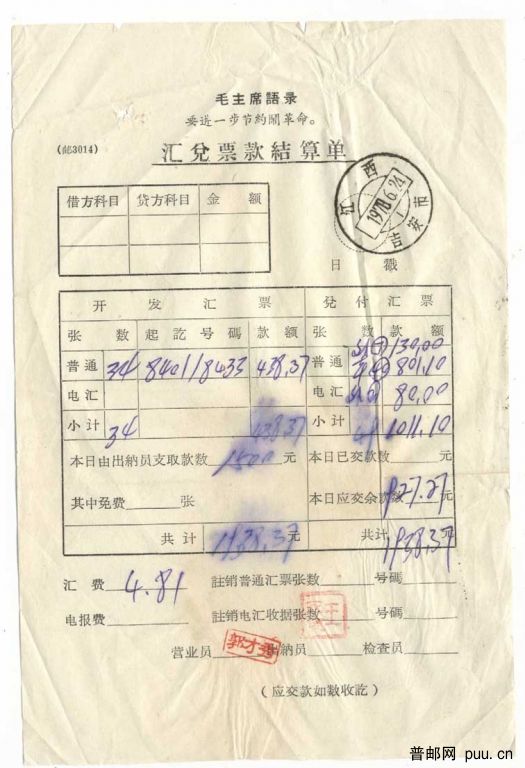 毛主席語录
要进一步节約鬧革命。
(邮3014)
汇兌票款結算单
江西
1970.6.24
1
吉安市
借方科目 贷方科目 金額
日戳
开发汇票 兌付汇票
张数 起訖号碼 款額 张数 款額
130.00
普通 34 8401/8433 438.37 普通 801.10
电汇 电汇 80.00
小计 34 438.37 小计 41 1011.10
本日由出纳员支取款数 1500 元 本日已交款数 元
其中免費 张 本日应交余款数 927.27 元
共计 1938.37 元 共计 1938.37
汇費 4.81 註銷普通汇票张数 号碼
电报費 註銷电汇收据张数 号碼
营业员 出納员 检查员
郭才秀
(应交款如数收訖)
普邮网 puu.cn